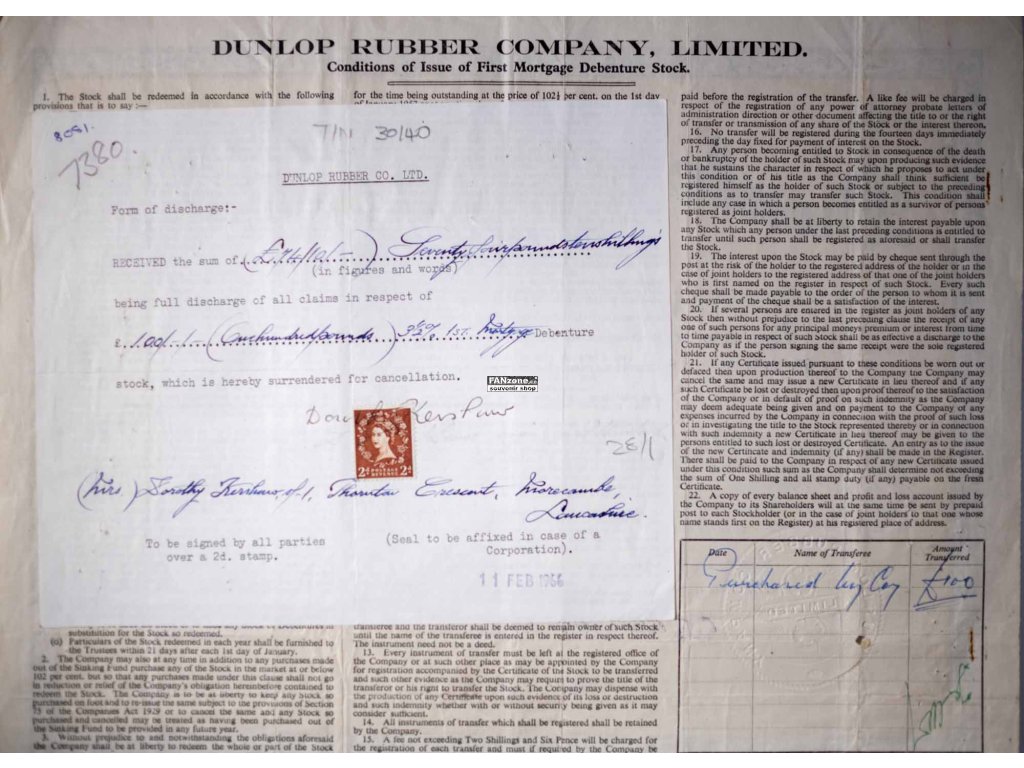 DUNLOP RUBBER COMPANY, LIMITED.
Conditions of Issue of First Mortgage Debenture Stock.
1. The Stock shall be redeemed in accordance with the following
provisions that is to say :—
for the time being outstanding at the price of 102½ per cent. on the 1st day
8081.
7380.
7/N 30/40
DUNLOP RUBBER CO. LTD.
Form of discharge:-
RECEIVED the sum of (£74/10/-) Seventy four pounds ten shillings
(in figures and words)
being full discharge of all claims in respect of
£ 100/-/- (One hundred pounds) 3½% 1st. Mortgage Debenture
stock, which is hereby surrendered for cancellation.
FANzone
souvenir shop
Kershaw
2d POSTAGE REVENUE 2d
28/1
(Mrs) Dorothy Kershaw, of 1, Thornton Crescent, Morecambe,
Lancashire.
To be signed by all parties
over a 2d. stamp.
(Seal to be affixed in case of a
Corporation).
11 FEB 1966
substitution for the Stock so redeemed.
(c) Particulars of the Stock redeemed in each year shall be furnished to
the Trustees within 21 days after each 1st day of January.
2. The Company may also at any time in addition to any purchases made
out of the Sinking Fund purchase any of the Stock in the market at or below
102 per cent. but so that any purchases made under this clause shall not go
in reduction or relief of the Company's obligation hereinbefore contained to
redeem the Stock. The Company is to be at liberty to keep any Stock so
purchased on foot and to re-issue the same subject to the provisions of Section
75 of the Companies Act 1929 or to cancel the same and any Stock so
purchased and cancelled may be treated as having been purchased out of the
Sinking Fund to be provided in any future year.
3. Without prejudice to and notwithstanding the obligations aforesaid
the Company shall be at liberty to redeem the whole or part of the Stock
transferee and the transferor shall be deemed to remain owner of such Stock
until the name of the transferee is entered in the register in respect thereof.
The instrument need not be a deed.
13. Every instrument of transfer must be left at the registered office of
the Company or at such other place as may be appointed by the Company
for registration accompanied by the Certificate of the Stock to be transferred
and such other evidence as the Company may require to prove the title of the
transferor or his right to transfer the Stock. The Company may dispense with
the production of any Certificate upon such evidence of its loss or destruction
and such indemnity whether with or without security being given as it may
consider sufficient.
14. All instruments of transfer which shall be registered shall be retained
by the Company.
15. A fee not exceeding Two Shillings and Six Pence will be charged for
the registration of each transfer and must if required by the Company be
paid before the registration of the transfer. A like fee will be charged in
respect of the registration of any power of attorney probate letters of
administration direction or other document affecting the title to or the right
of transfer or transmission of any share of the Stock or the interest thereon.
16. No transfer will be registered during the fourteen days immediately
preceding the day fixed for payment of interest on the Stock.
17. Any person becoming entitled to Stock in consequence of the death
or bankruptcy of the holder of such Stock may upon producing such evidence
that he sustains the character in respect of which he proposes to act under
this condition or of his title as the Company shall think sufficient be
registered himself as the holder of such Stock or subject to the preceding
conditions as to transfer may transfer such Stock. This condition shall
include any case in which a person becomes entitled as a survivor of persons
registered as joint holders.
18. The Company shall be at liberty to retain the interest payable upon
any Stock which any person under the last preceding condition is entitled to
transfer until such person shall be registered as aforesaid or shall transfer
the Stock.
19. The interest upon the Stock may be paid by cheque sent through the
post at the risk of the holder to the registered address of the holder or in the
case of joint holders to the registered address of that one of the joint holders
who is first named on the register in respect of such Stock. Every such
cheque shall be made payable to the order of the person to whom it is sent
and payment of the cheque shall be a satisfaction of the interest.
20. If several persons are entered in the register as joint holders of any
Stock then without prejudice to the last preceding clause the receipt of any
one of such persons for any principal moneys premium or interest from time
to time payable in respect of such Stock shall be as effective a discharge to the
Company as if the person signing the same receipt were the sole registered
holder of such Stock.
21. If any Certificate issued pursuant to these conditions be worn out or
defaced then upon production thereof to the Company the Company may
cancel the same and may issue a new Certificate in lieu thereof and if any
such Certificate be lost or destroyed then upon proof thereof to the satisfaction
of the Company or in default of proof on such indemnity as the Company
may deem adequate being given and on payment to the Company of any
expenses incurred by the Company in connection with the proof of such loss
or in investigating the title to the Stock represented thereby or in connection
with such indemnity a new Certificate in lieu thereof may be given to the
persons entitled to such lost or destroyed Certificate. An entry as to the issue
of the new Certificate and indemnity (if any) shall be made in the Register.
There shall be paid to the Company in respect of any new Certificate issued
under this condition such sum as the Company shall determine not exceeding
the sum of One Shilling and all stamp duty (if any) payable on the fresh
Certificate.
22. A copy of every balance sheet and profit and loss account issued by
the Company to its Shareholders will at the same time be sent by prepaid
post to each Stockholder (or in the case of joint holders to that one whose
name stands first on the Register) at his registered place of address.
Date Name of Transferee Amount Transferred
Purchased by Coy £100